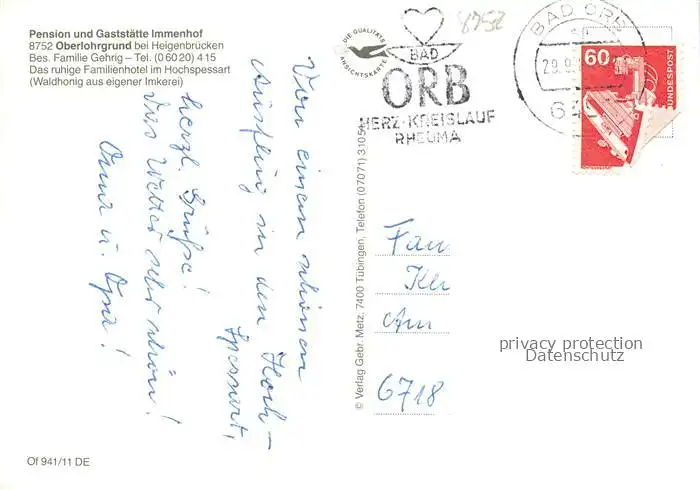 Pension und Gaststätte Immenhof
8752 Oberlohrgrund bei Heigenbrücken
Bes. Familie Gehrig – Tel. (0 60 20) 4 15
Das ruhige Familienhotel im Hochspessart
(Waldhonig aus eigener Imkerei)
DIE QUALITÄTS
ANSICHTSKARTE
8752
BAD
ORB
HERZ-KREISLAUF
RHEUMA
BAD ORB
29.9.
60
BUNDESPOST
Von einem schönen
Ausflug in den Hoch-
spessart,
herzl. Grüße!
Das Wetter sehr schön!
Oma u. Opa!
© Verlag Gebr. Metz, 7400 Tübingen, Telefon (07071) 3105
Fam
Kl
Am
6718
privacy protection
Datenschutz
Of 941/11 DE